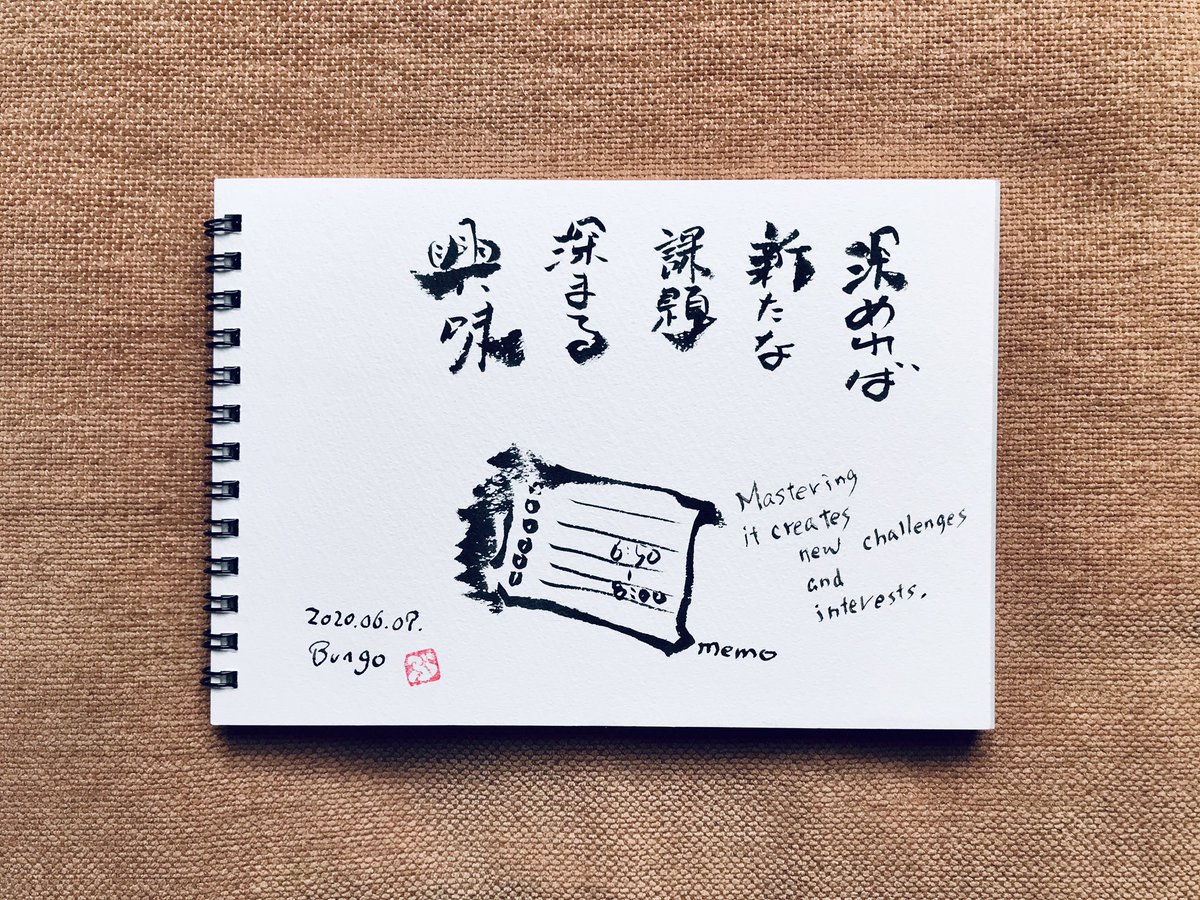 深めれば
新たな
課題
深まる
興味
Mastering
it creates
new challenges
and
interests.
6:50
8:00
memo
2020.06.07.
Bungo